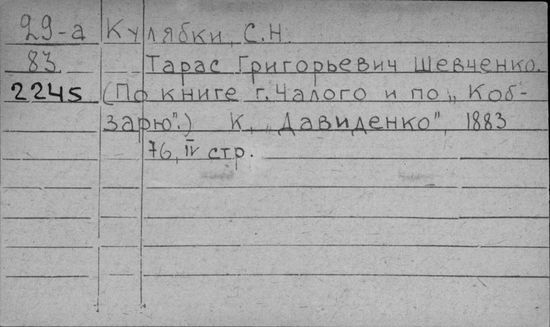 29-а Кулябки, С.Н.
83. Тарас Григорьевич Шевченко.
2245 (По книге г. Чалого и по „Коб-
зарю".) К, „Давиденко", 1883
76, IV стр.